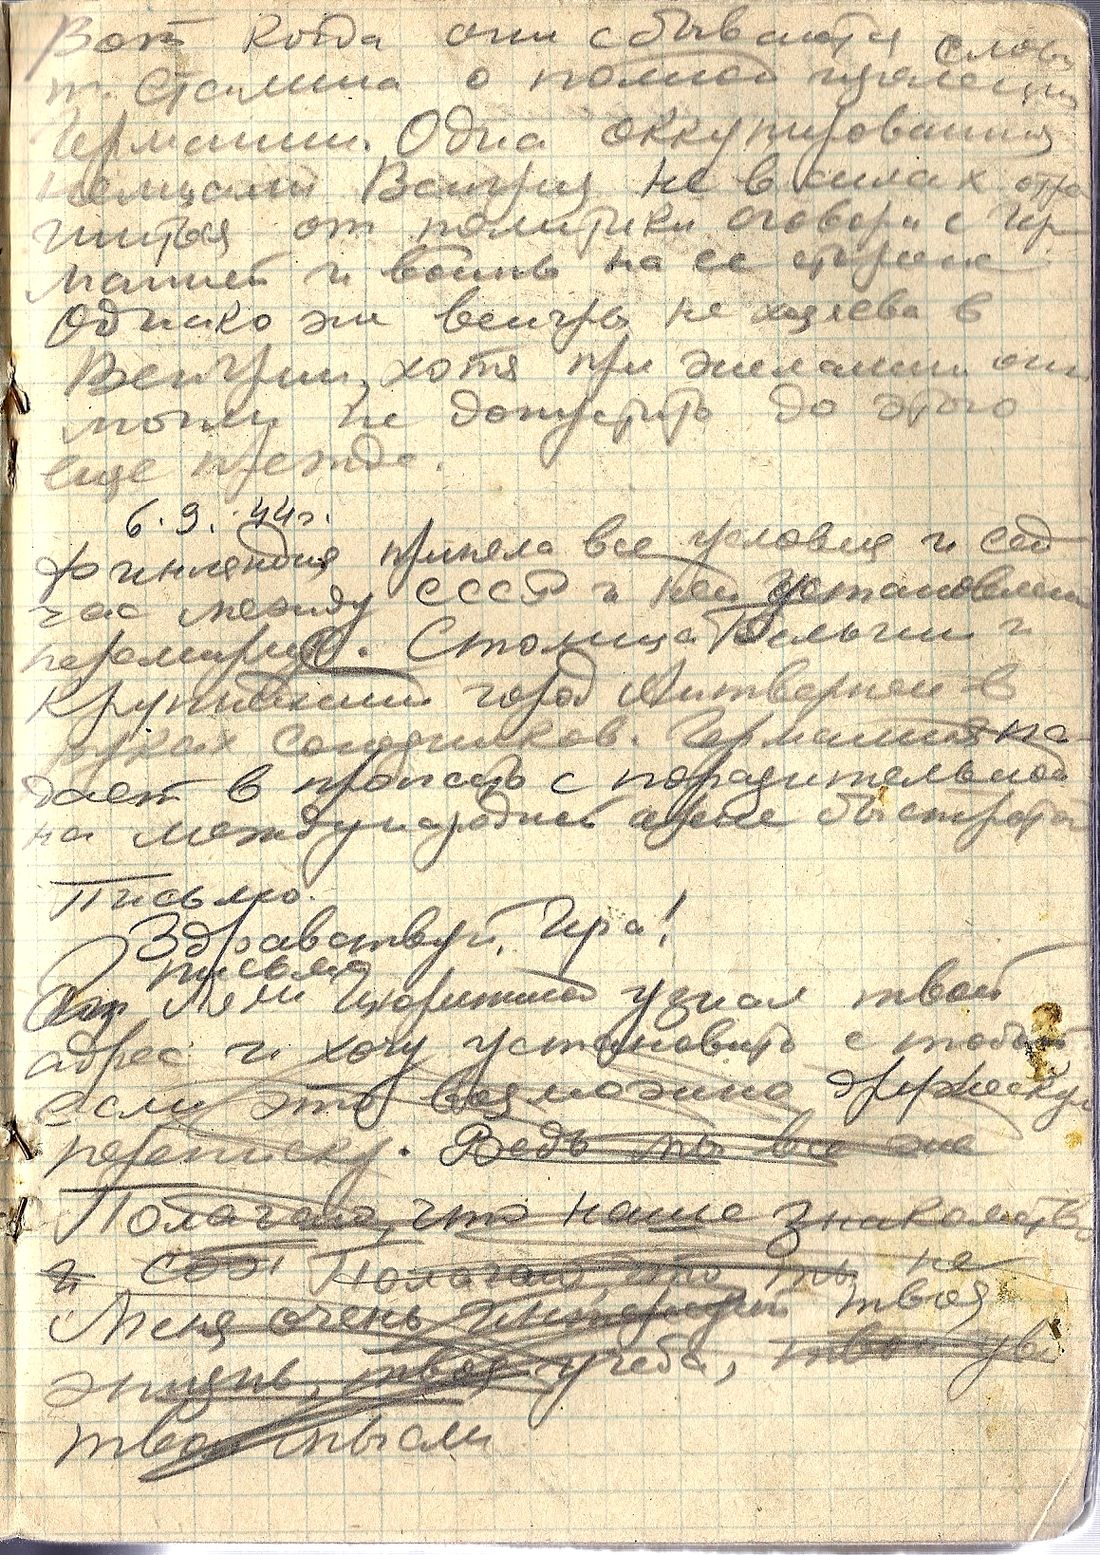 Вот когда они сбываются слова
т. Сталина о полной изоляции
Германии. Одна оккупированная
немцами Венгрия не в силах отка
титься от политики сговора с Гер
манией и войны на ее стороне
Однако же венгры не хозяева в
Венгрии, хотя при желании они
могли не допустить до этого
еще прежде.
6.9.44г.
Финляндия приняла все условия и сей
час между СССР и ней установлено
перемирие. Столица Бельгии и
крупнейший город Антверпен в
руках союзников. Германия па
дает в пропасть с поразительной
на международной арене быстротой
Письмо.
Здравствуй, Ира!
письма
Из Ляли узнал твой
адрес и хочу установить с тобой
если это возможно дружескую
переписку. Ведь мы все же
Полагаю, что наше знакомство
и Полагаю что ты не
Меня очень твоя
жизнь, твоя учеба,
твои мысли